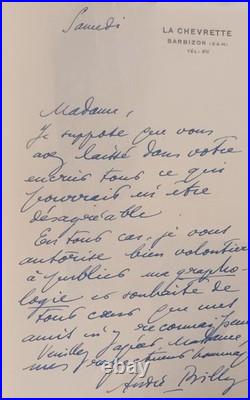 Samedi
LA CHEVRETTE
BARBIZON (S&M)
TÉL. 80
Madame,
Je suppose que vous
avez laissé dans votre
encrier tout ce qui
pourrait m'être
désagréable.
En tout cas, je vous
autorise bien volontiers
à publier ma grapho-
logie et souhaite de
tout cœur que mes
amis m'y reconnaissent
Veuillez agréer, Madame,
mes respectueux hommages
André Billy